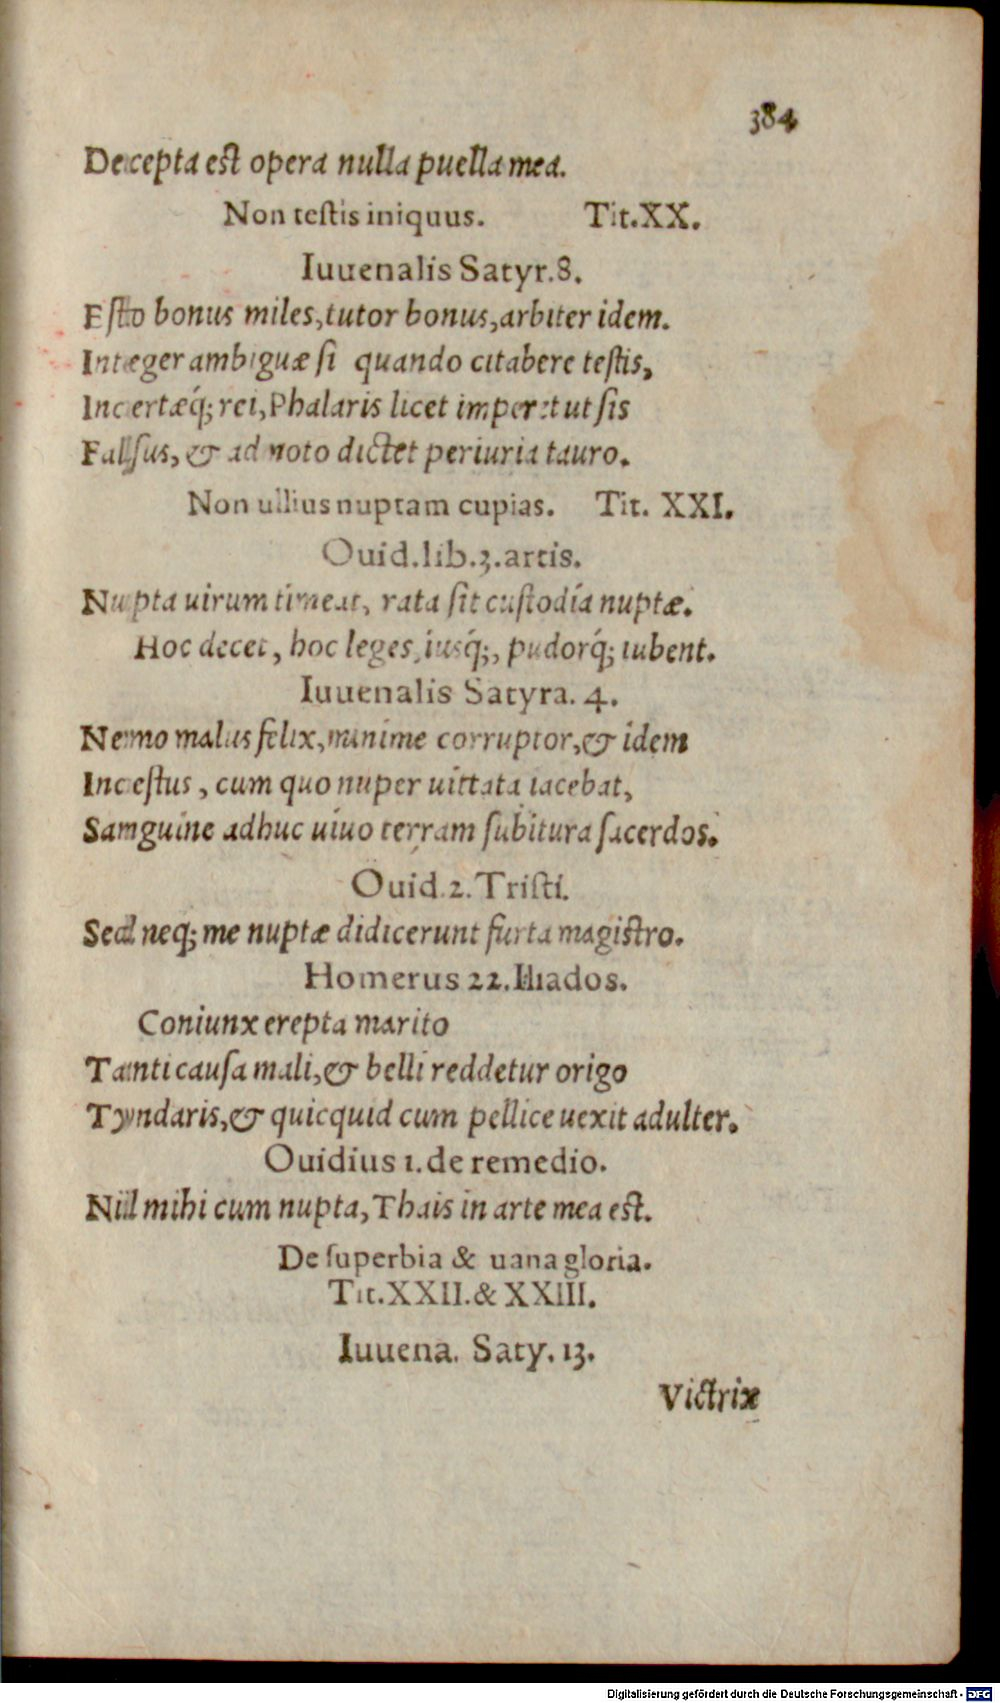 384
Decepta est opera nulla puella mea.
Non testis iniquus. Tit.XX.
Iuuenalis Satyr.8.
Esto bonus miles, tutor bonus, arbiter idem.
Integer ambiguæ si quando citabere testis,
Incertæq́; rei, Phalaris licet imperet ut sis
Falsus, & admoto dictet periuria tauro.
Non ullius nuptam cupias. Tit. XXI.
Ouid.lib.3.artis.
Nupta uirum timeat, rata sit custodia nuptæ.
Hoc decet, hoc leges, iusq́;, pudorq́; iubent.
Iuuenalis Satyra. 4.
Nemo malus felix, minime corruptor, & idem
Incestus, cum quo nuper uittata iacebat,
Sanguine adhuc uiuo terram subitura sacerdos.
Ouid.2.Tristi.
Sed neq; me nuptæ didicerunt furta magistro.
Homerus 22.Iliados.
Coniunx erepta marito
Tanti causa mali, & belli reddetur origo
Tyndaris, & quicquid cum pellice uexit adulter.
Ouidius 1.de remedio.
Nil mihi cum nupta, Thais in arte mea est.
De superbia & uana gloria.
Tit.XXII.& XXIII.
Iuuena. Saty. 13.
Victrix
Digitalisierung gefördert durch die Deutsche Forschungsgemeinschaft - DFG